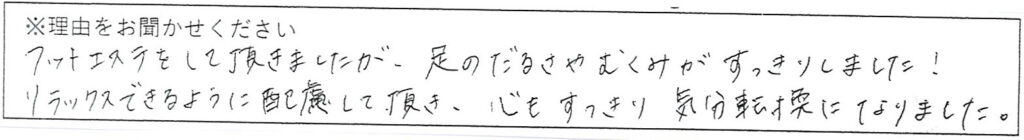 ※理由をお聞かせください
フットエステをして頂きましたが、足のだるさやむくみがすっきりしました！
リラックスできるように配慮して頂き、心もすっきり気分転換になりました。